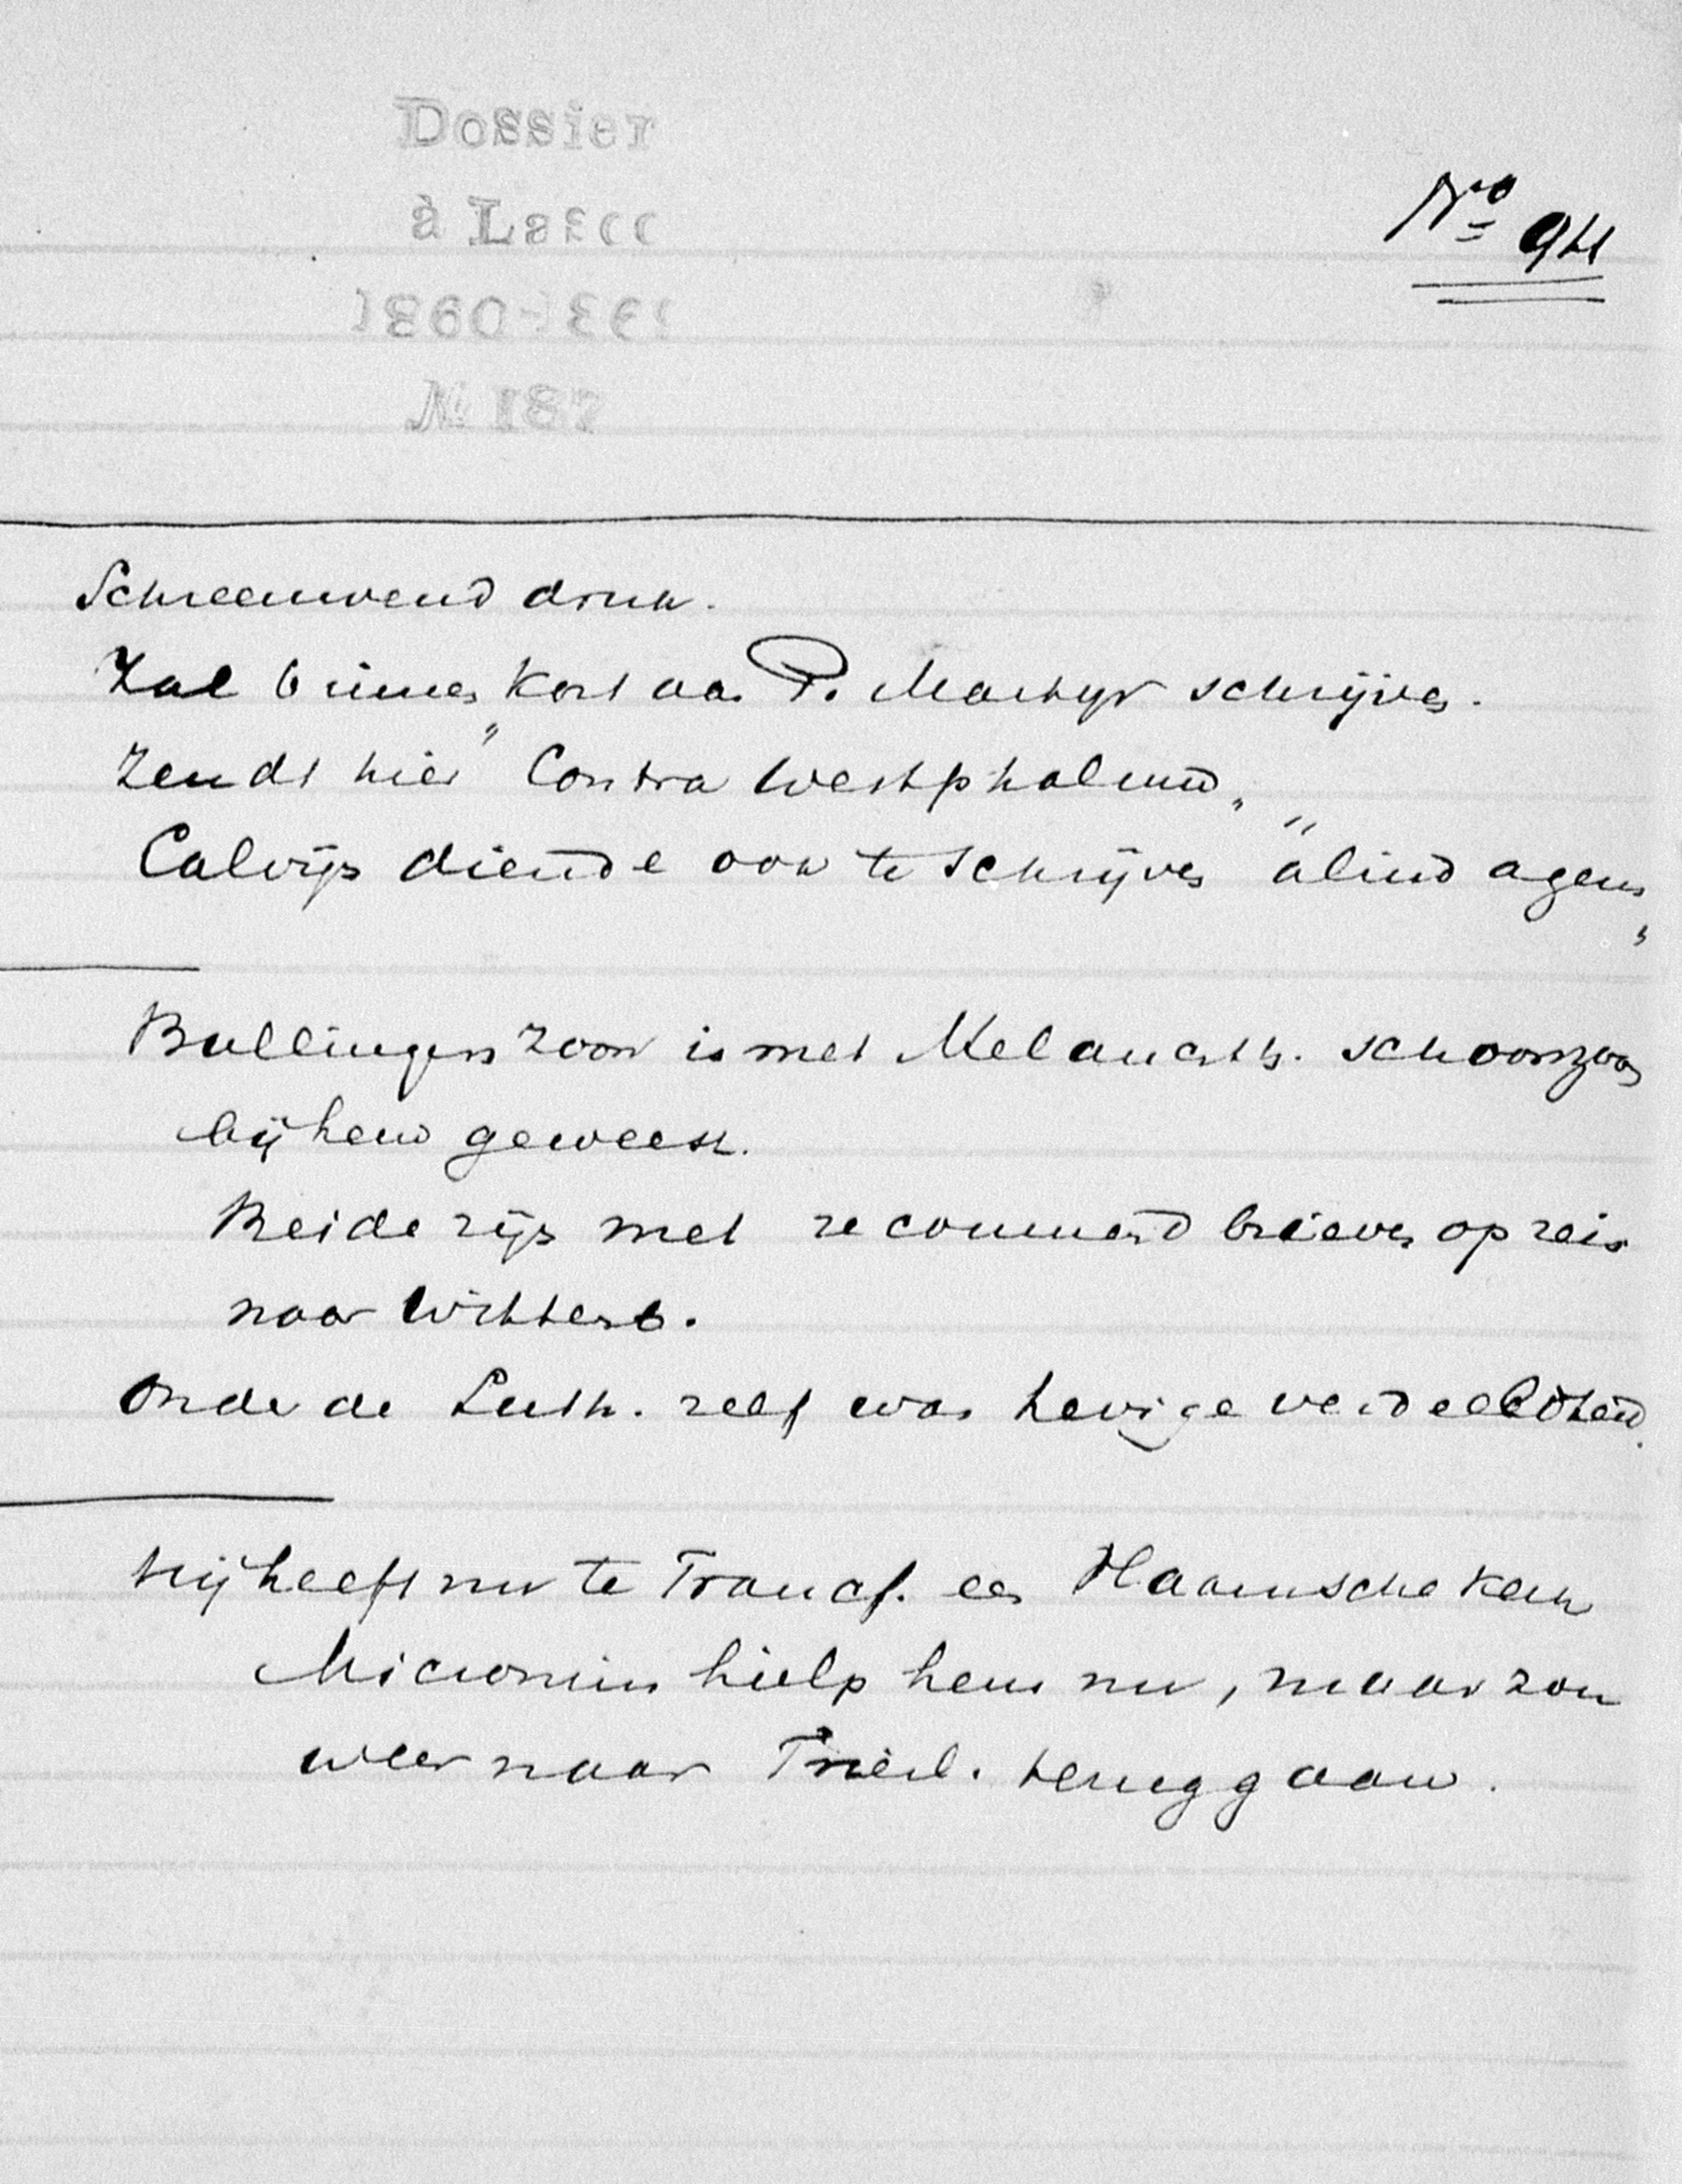 Dossier
à Lasco
1860-1861
№ 187
No 94
Schreeuwend druk.
Zal binnen kort aan P. Martyr schrijven.
Zendt hier "Contra Westphalum"
Calvijn diende ook te schrijven "aliud agens"
Bullingers zoon is met Melanchth. schoonzoon
bij hem geweest.
Beide zijn met recommand brieven op reis
naar Wittenb.
Onder de Luth. zelf was hevige verdeeldheid.
Hij heeft nu te Francf. een Vlaamsche kerk
Micronius hielp hem nu, maar zou
weer naar Friesl. teruggaan.